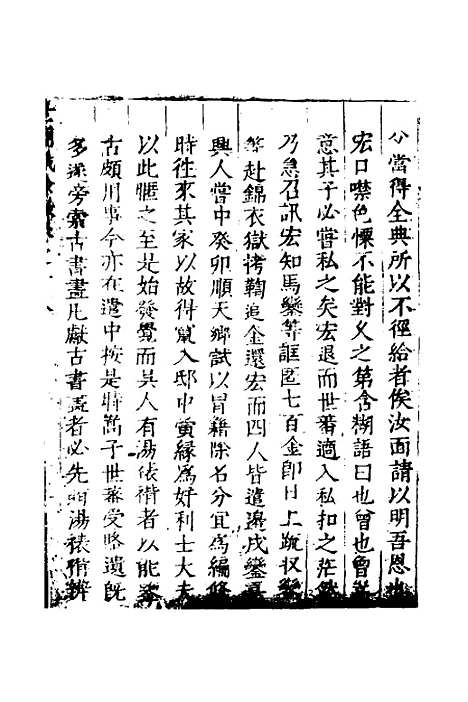 公當得全典所以不徑給者俟汝面請以明吾恩也
宏口噤色慄不能對乂之第含糊語曰也曾也曾
意其子必嘗私之矣宏退而世蕃適入私扣之茫然
乃急召訊宏知馬欒等誆匿七百金卽日上疏收欒
等赴錦衣獄拷鞫追金還宏而四人皆遣邊戍欒
興人嘗中癸卯順天鄉試以冒籍除名分宜爲編修
時往來其家以故得竄入邸中夤緣爲奸利士大夫
以此慝之至是始發覺而吳人有湯裱褙者以能
古頗用事今亦在遣中按是時嵩子世蕃受賂遺旣
多遂旁索古書畫凡獻古書畫者必先 湯裱褙辨